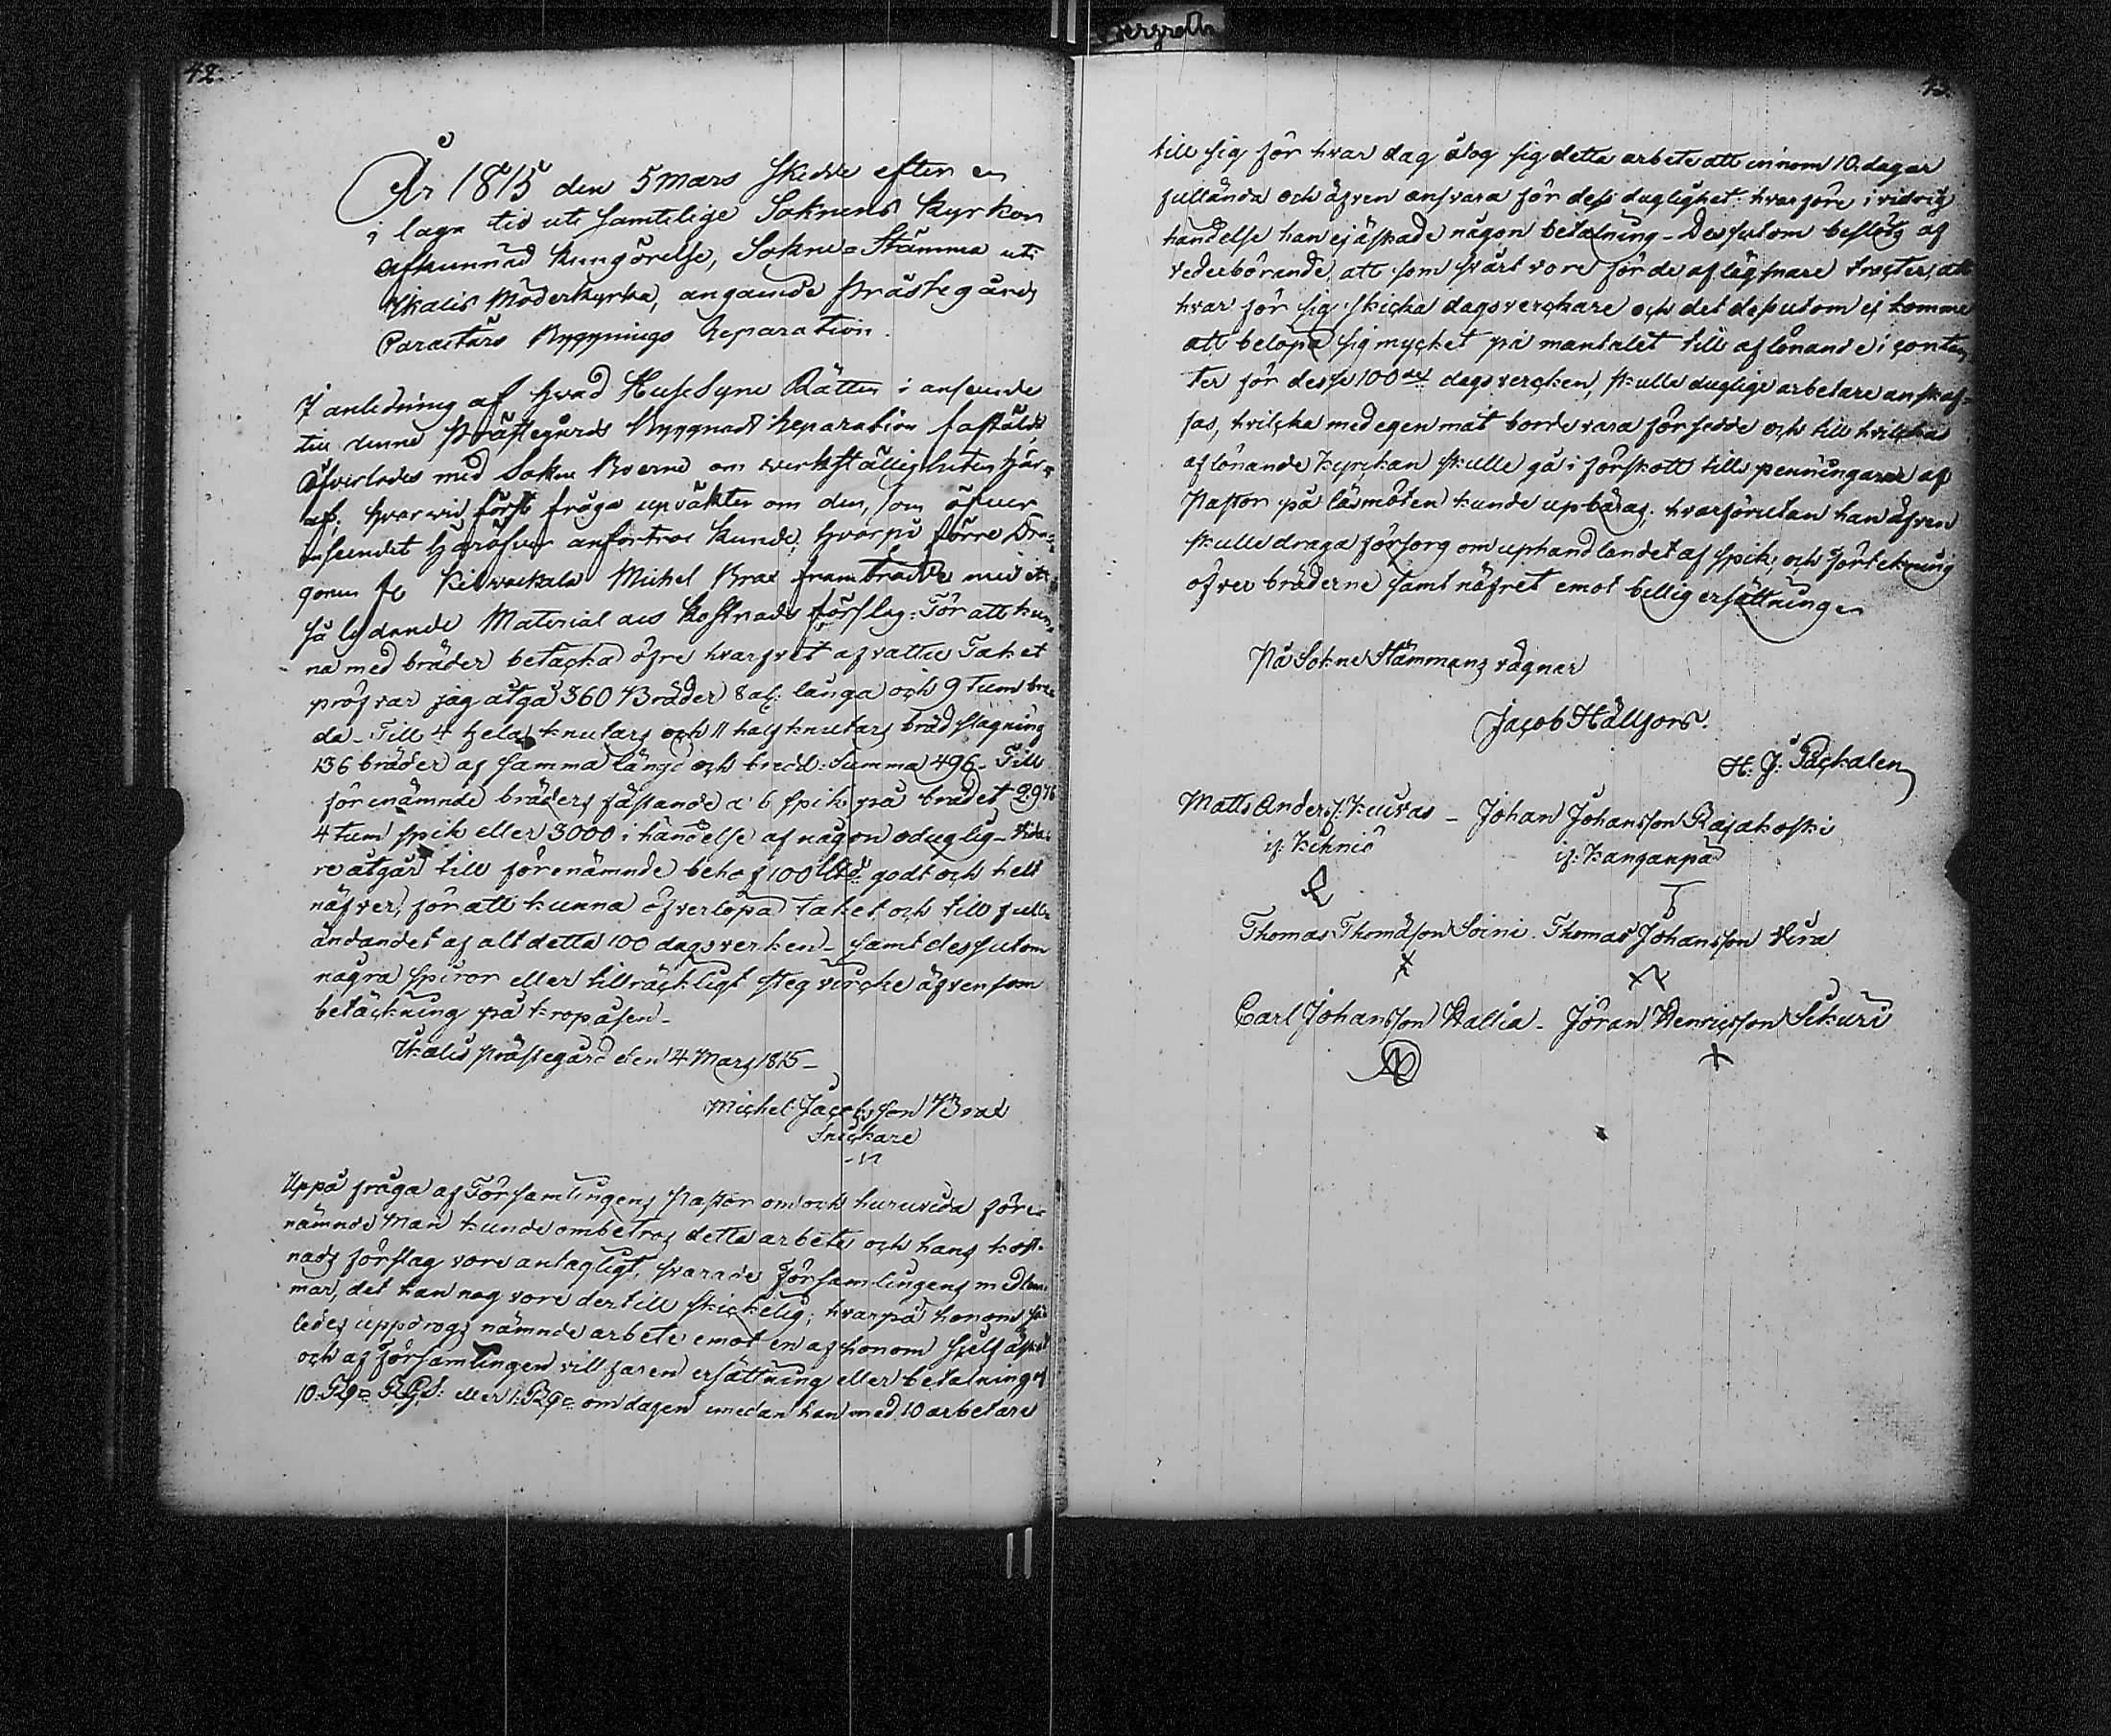 42.
År 1815 den 5 Mars skedde efter en
i laga tid uti samtelige Soknens Kyrkor
afkunnad kungörelse, Sokne-Stämma uti
Ikalis Moderkyrka, angående Prästegårds
Byggnings Reparation.
I anledning af hvad HuseSyne Rätten i anseende
till denne Prästegårds Byggnads Reparation fastäldt
öfverlades med Sokne Boerne om verkställigheten här-
af; hvarvid först fråga upväktes om den, som öfver
inseendet häröfver anförtros kunde, hvarpå förre Dra-
gonen fr Kilvakkala Michel Brax framträdde med ett
så lydande Material och Kostnads förslag: För att kun-
na med bräder betäcka öfre hvarfvet af vattu Taket
pröfvar jag åtgå 360 Bräder 8 al: långa och 9 tum bre-
da. Till 4 hela knutars och 11 half knutars brädslagning
136 bräder af samma längd och bredd: Summa 496. Till
förenämnde bräders fästande a 6 spik på brädet 2976
4 tum spik eller 3000 i händelse af någon oduglig. Vida-
re åtgår till förenämnde behof 100 godt och helt
näfver, för att kunna öfverlöpa taket och till full-
ändandet af alt detta 100 dagsverken. samt dessutom
några spiror eller tillräckligt stegvircke äfvensom
betäckning på kropåsen.
Ikalis Prästegård den 4 Mars 1815.
Michel Jacobsson Brax
Snickare
Uppå fråga af Församlingens Pastor om och huruvida före-
nämnde Man kunde ombetros detta arbete och hans kost-
nads förslag vore antagligt, svarade församlingens medlem-
mar, det han nog vore dertill skickelig; hvarpå honom så-
ledes uppdrogs nämnde arbete emot en af honom sjelf äskad
och af församlingen villfaren ersättning eller betalning af
10: R: eller 1: om dagen medan han med 10 arbetare
43.
till sig för hvar dag åtog sig detta arbete att innom 10 dagar
fullända och äfven ansvara för dess duglighet hvarföre i vidrig
händelse han ej äskade någon betalning. Dessutom beslöts af
vederbörande, att som svårt vore för de aflägsnare tracter, att
hvar för sig skicka dagsverckare och det dessutom ej komme
att belöpa sig mycket på mantalet till aflönande i conten-
ter för desse 100de dagsvercken, skulle duglige arbetare anskaf-
fas, hvilcka med egen mat borde vara försedde och till hvilckas
aflönande Kyrckan skulle gå i förskott tills penningarne af
Pastor på läsmöten kunde upbäras; hvarförutan han äfven
skulle draga försorg om uphandlandet af spik, och förteckning
öfver bräderne samt näfret emot billig ersättning.
På Sokne Stämmans vägnar
Jacob Hällfors.
H: J: Packalen
Matts Anders: Kuivas - Johan Johansson Rajakoski
if: Kihniö if: Kanganpä
Thomas Thomasson Soini. Thomas Johansson
Carl Johansson Wallia - Jöran Henricsson Sikuri